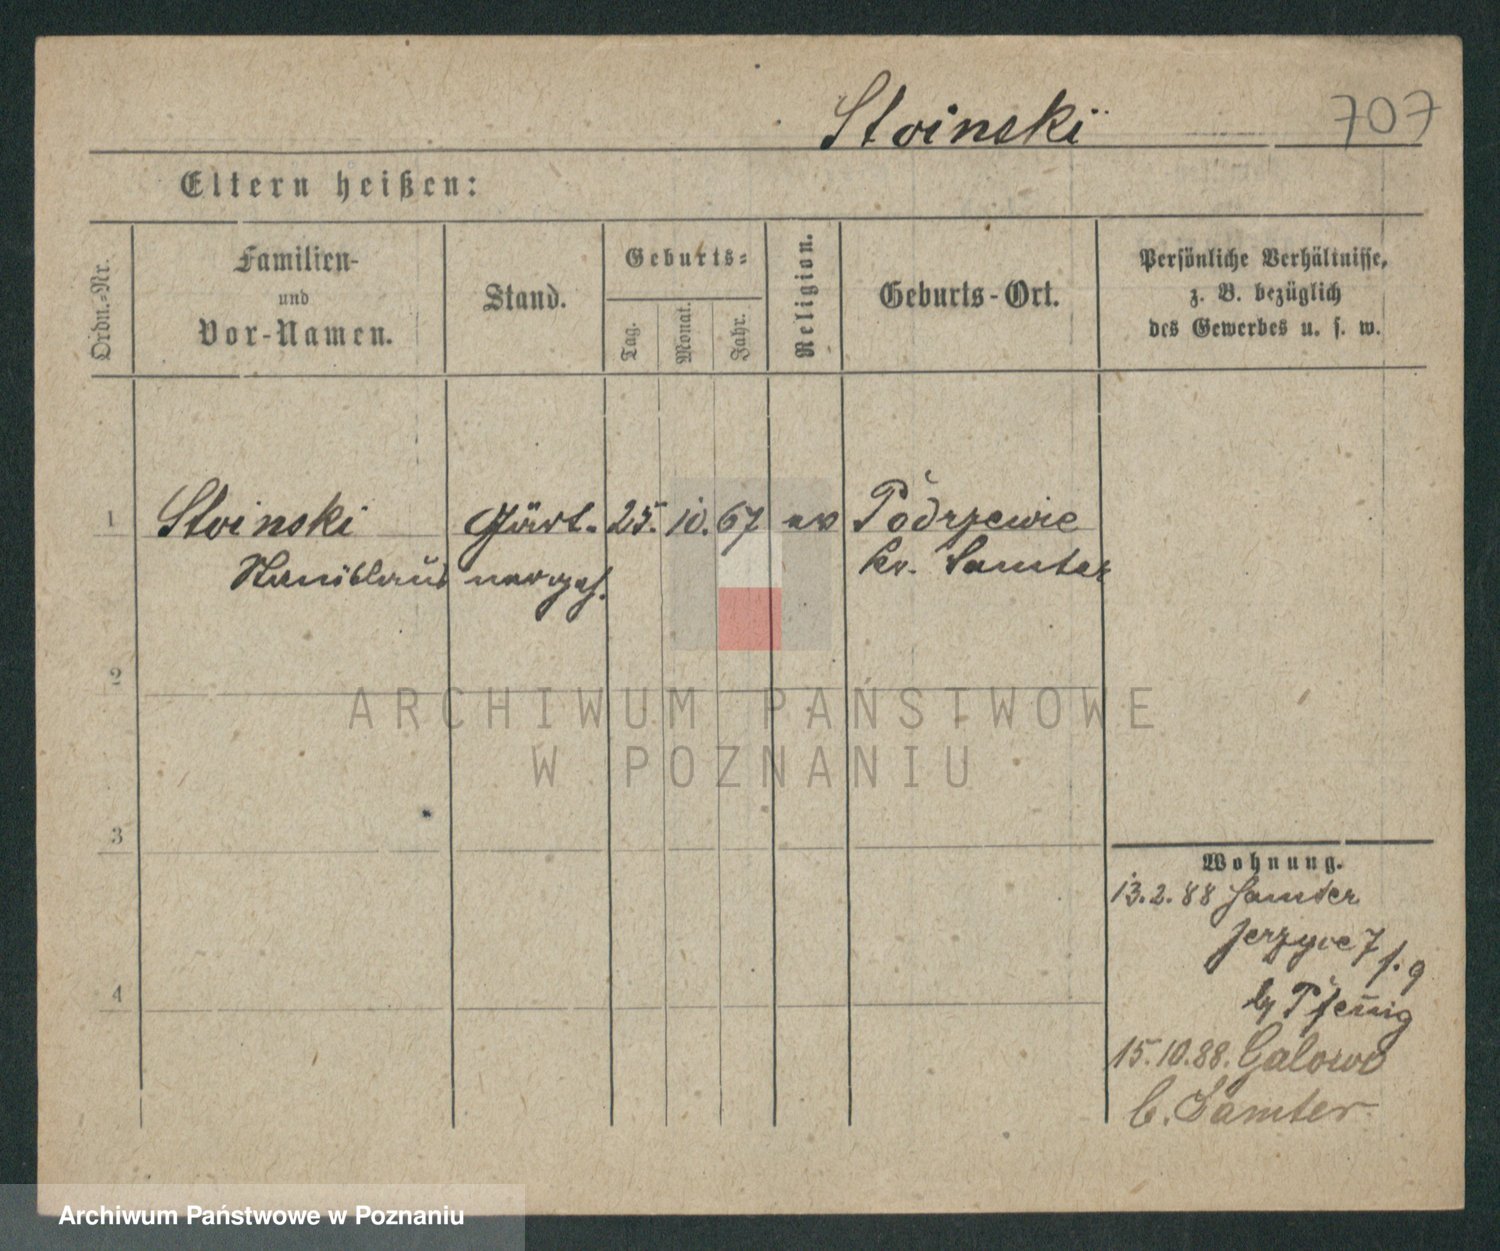 Stoinski 707
Eltern heißen:
Ordn.-Nr.
Familien-
und
Vor-Namen.
Stand.
Geburts-
Tag.
Monat.
Jahr.
Religion.
Geburts-Ort.
Persönliche Verhältnisse,
z. B. bezüglich
des Gewerbes u. s. w.
1 Stoinski Gärt- 25. 10. 67 Podrzewie
Stanislaus nergeh. Kr. Samter
2
3
4
Wohnung.
13.2.88 Samter
Jerzyce 7
by Pfennig
15.10.88. Galowo
b. Samter
ARCHIWUM PAŃSTWOWE
W POZNANIU
Archiwum Państwowe w Poznaniu